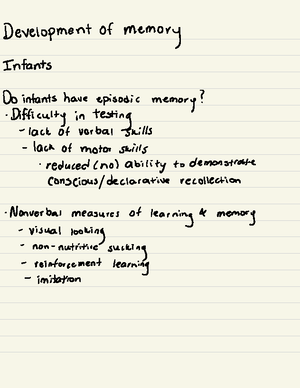 Development of memory
Infants
Do infants have episodic memory?
· Difficulty in testing
- lack of verbal skills
- lack of motor skills
· reduced (no) ability to demonstrate
conscious/declarative recollection
· Nonverbal measures of learning & memory
- visual looking
- non-nutritive sucking
- reinforcement learning
- imitation